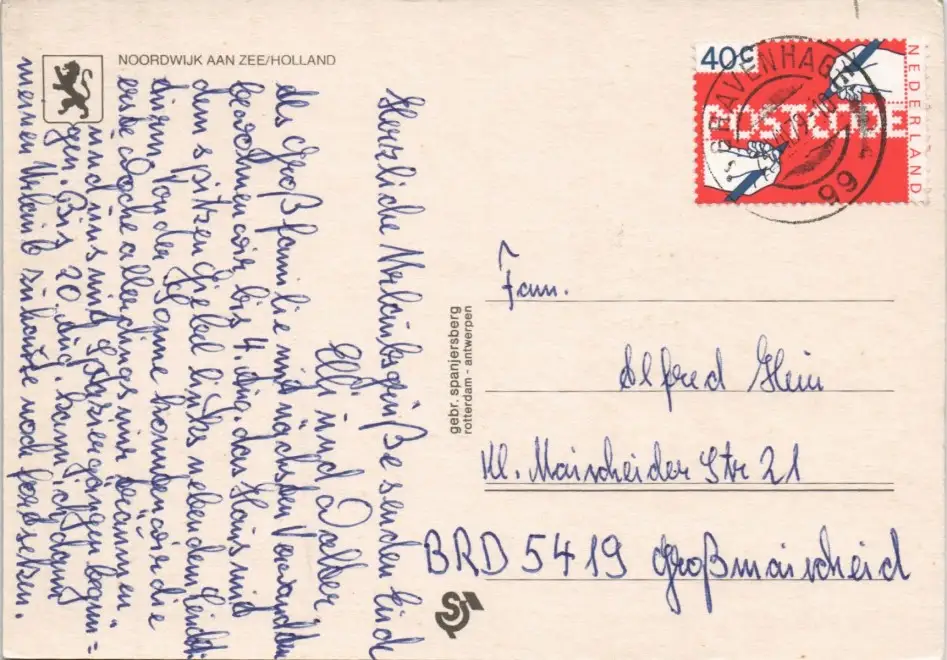 NOORDWIJK AAN ZEE/HOLLAND
40c
POSTCODE
NEDERLAND
'S GRAVENHAGE
79-18
99
Herzliche Urlaubsgrüße senden Euch
Elfi und
Als Großfamilie mit nächsten Verwandten
bewohnen wir bis 4. Aug. das Haus mit
dem spitzen Giebel links neben dem Leucht-
turm. Von der Sonne konnten wir die
erste Woche allerdings nur träumen
und uns mit Spaziergängen begnü=
gen. Bis 20. Aug. kann ich dann
meinen Urlaub zuhause noch fortsetzen.
gebr. spanjersberg
rotterdam - antwerpen
Fam.
Alfred Hein
Kl. Maischeider Str 21
BRD 5419 Großmaischeid
S